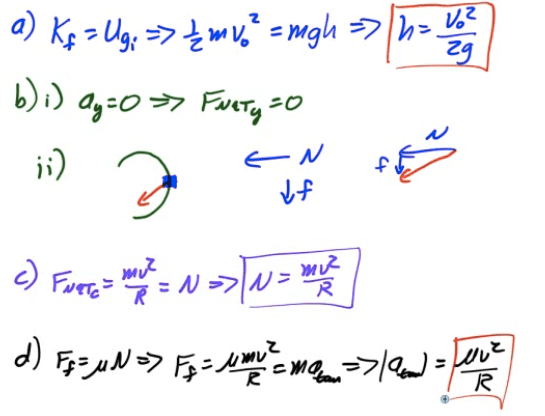 a) K_f = U_gi => 1/2 mv₀² = mgh => h = v₀²/2g
b) i) a_y = 0 => F_NET_y = 0
ii) N f N f
c) F_NET_c = mv²/R = N => N = mv²/R
d) F_f = μN => F_f = μmv²/R = ma_tan => |a_tan| = μv²/R